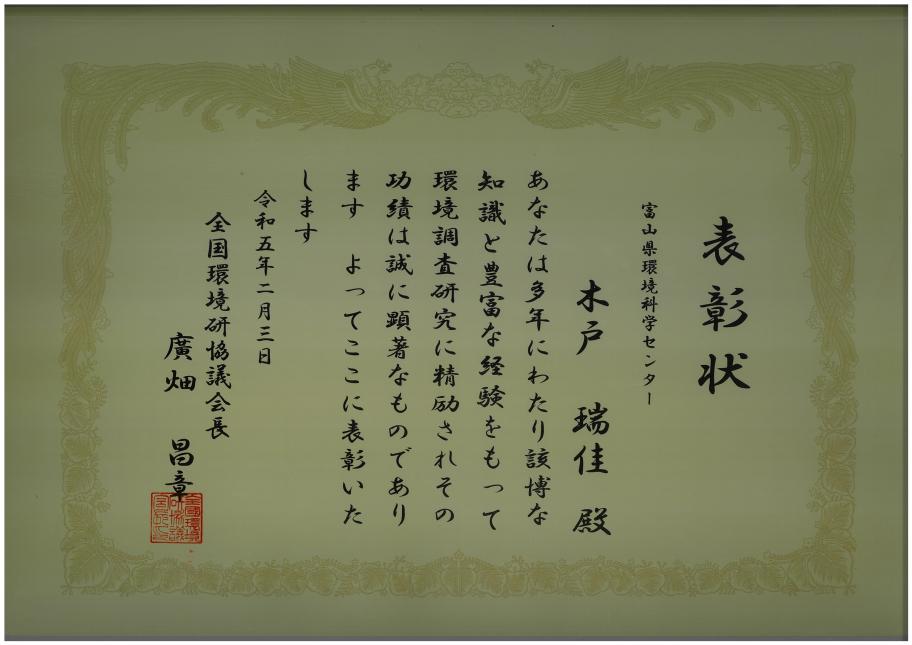 表彰状
富山県環境科学センター
木戸 瑞佳 殿
あなたは多年にわたり該博な
知識と豊富な経験をもって
環境調査研究に精励されその
功績は誠に顕著なものであり
ます よってここに表彰いた
します
令和五年二月三日
全国環境研協議会長
廣畑 昌章